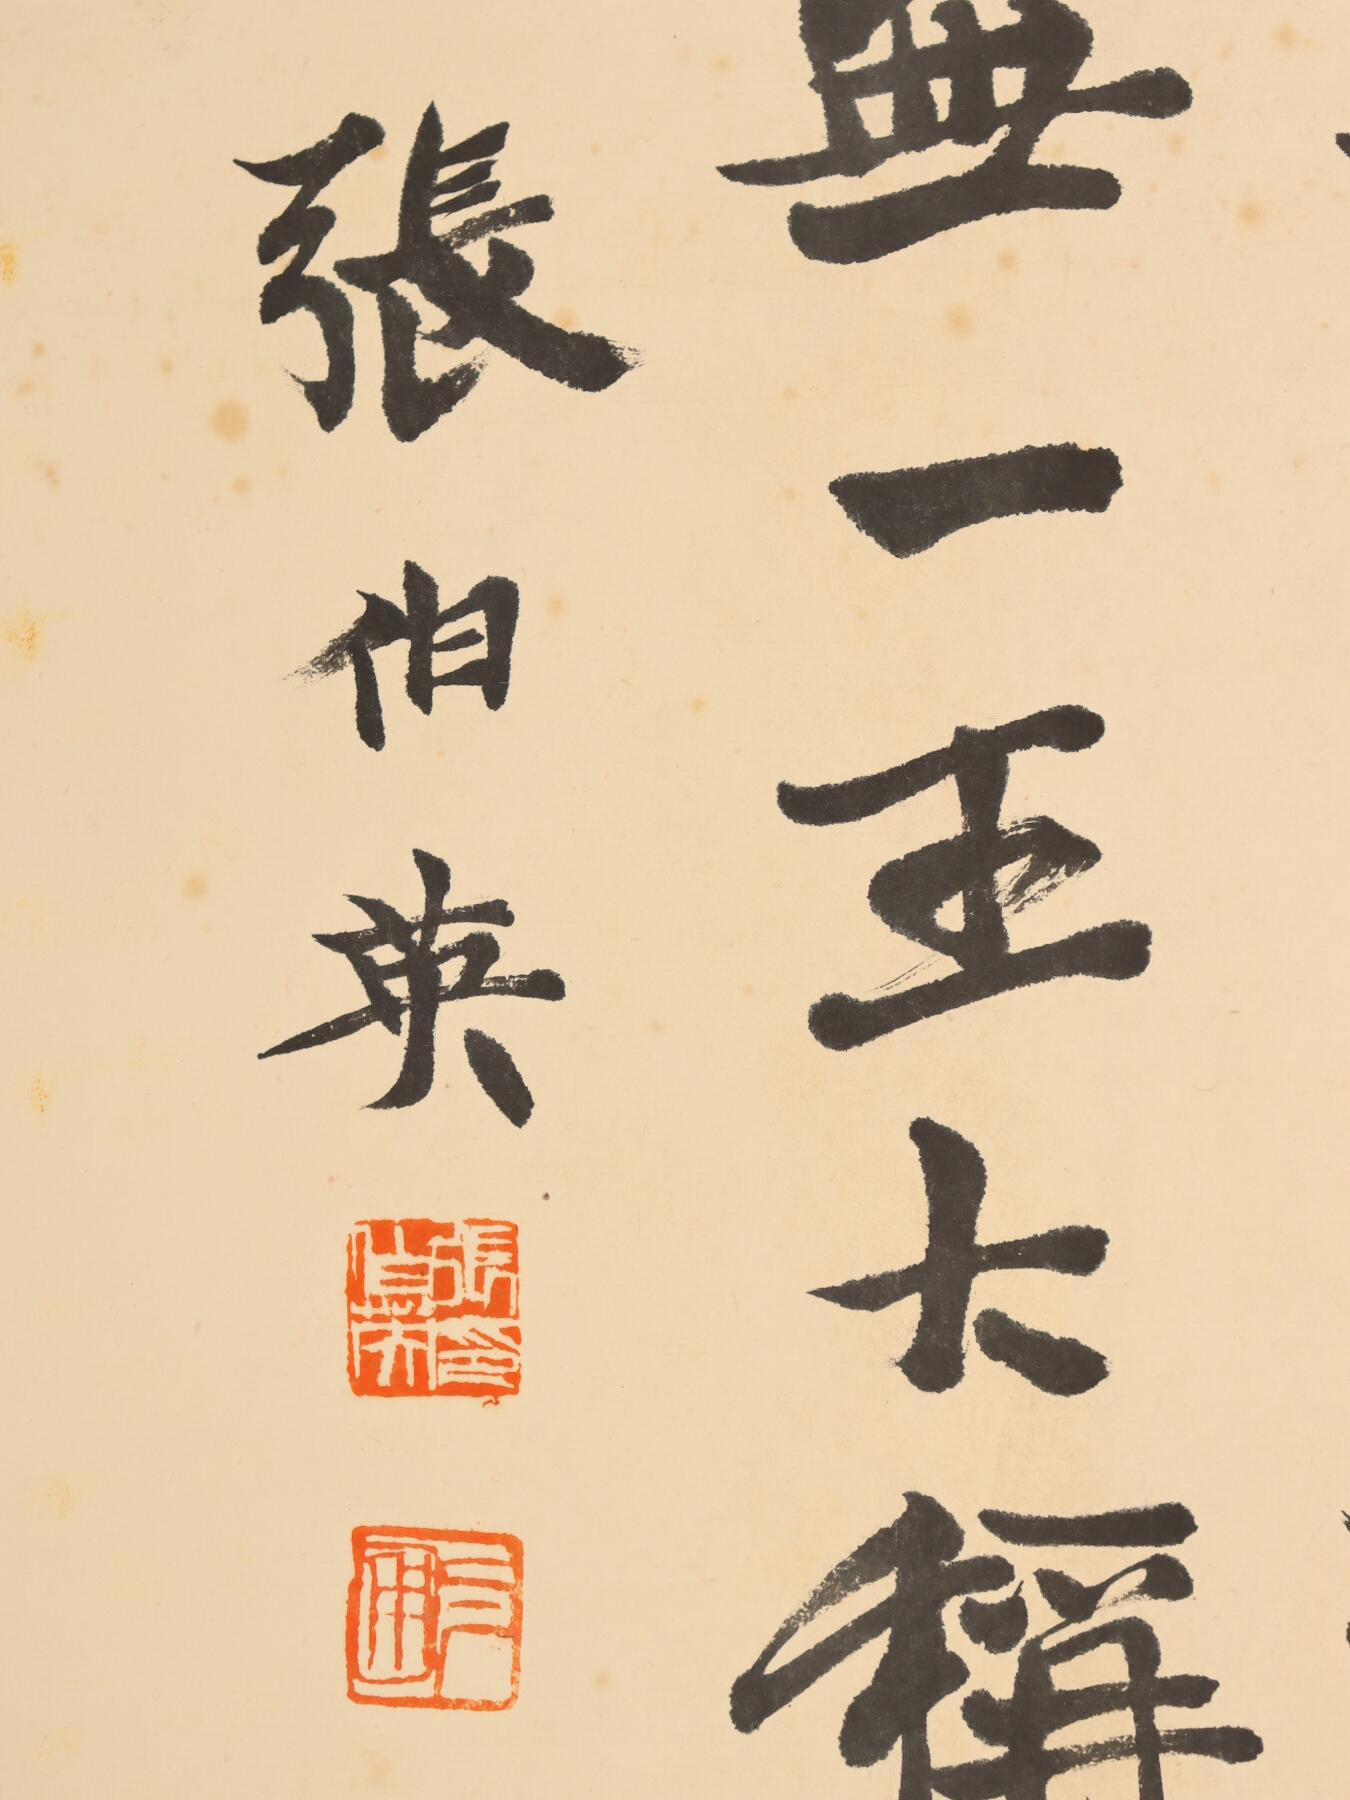 無一王大稱
張伯英